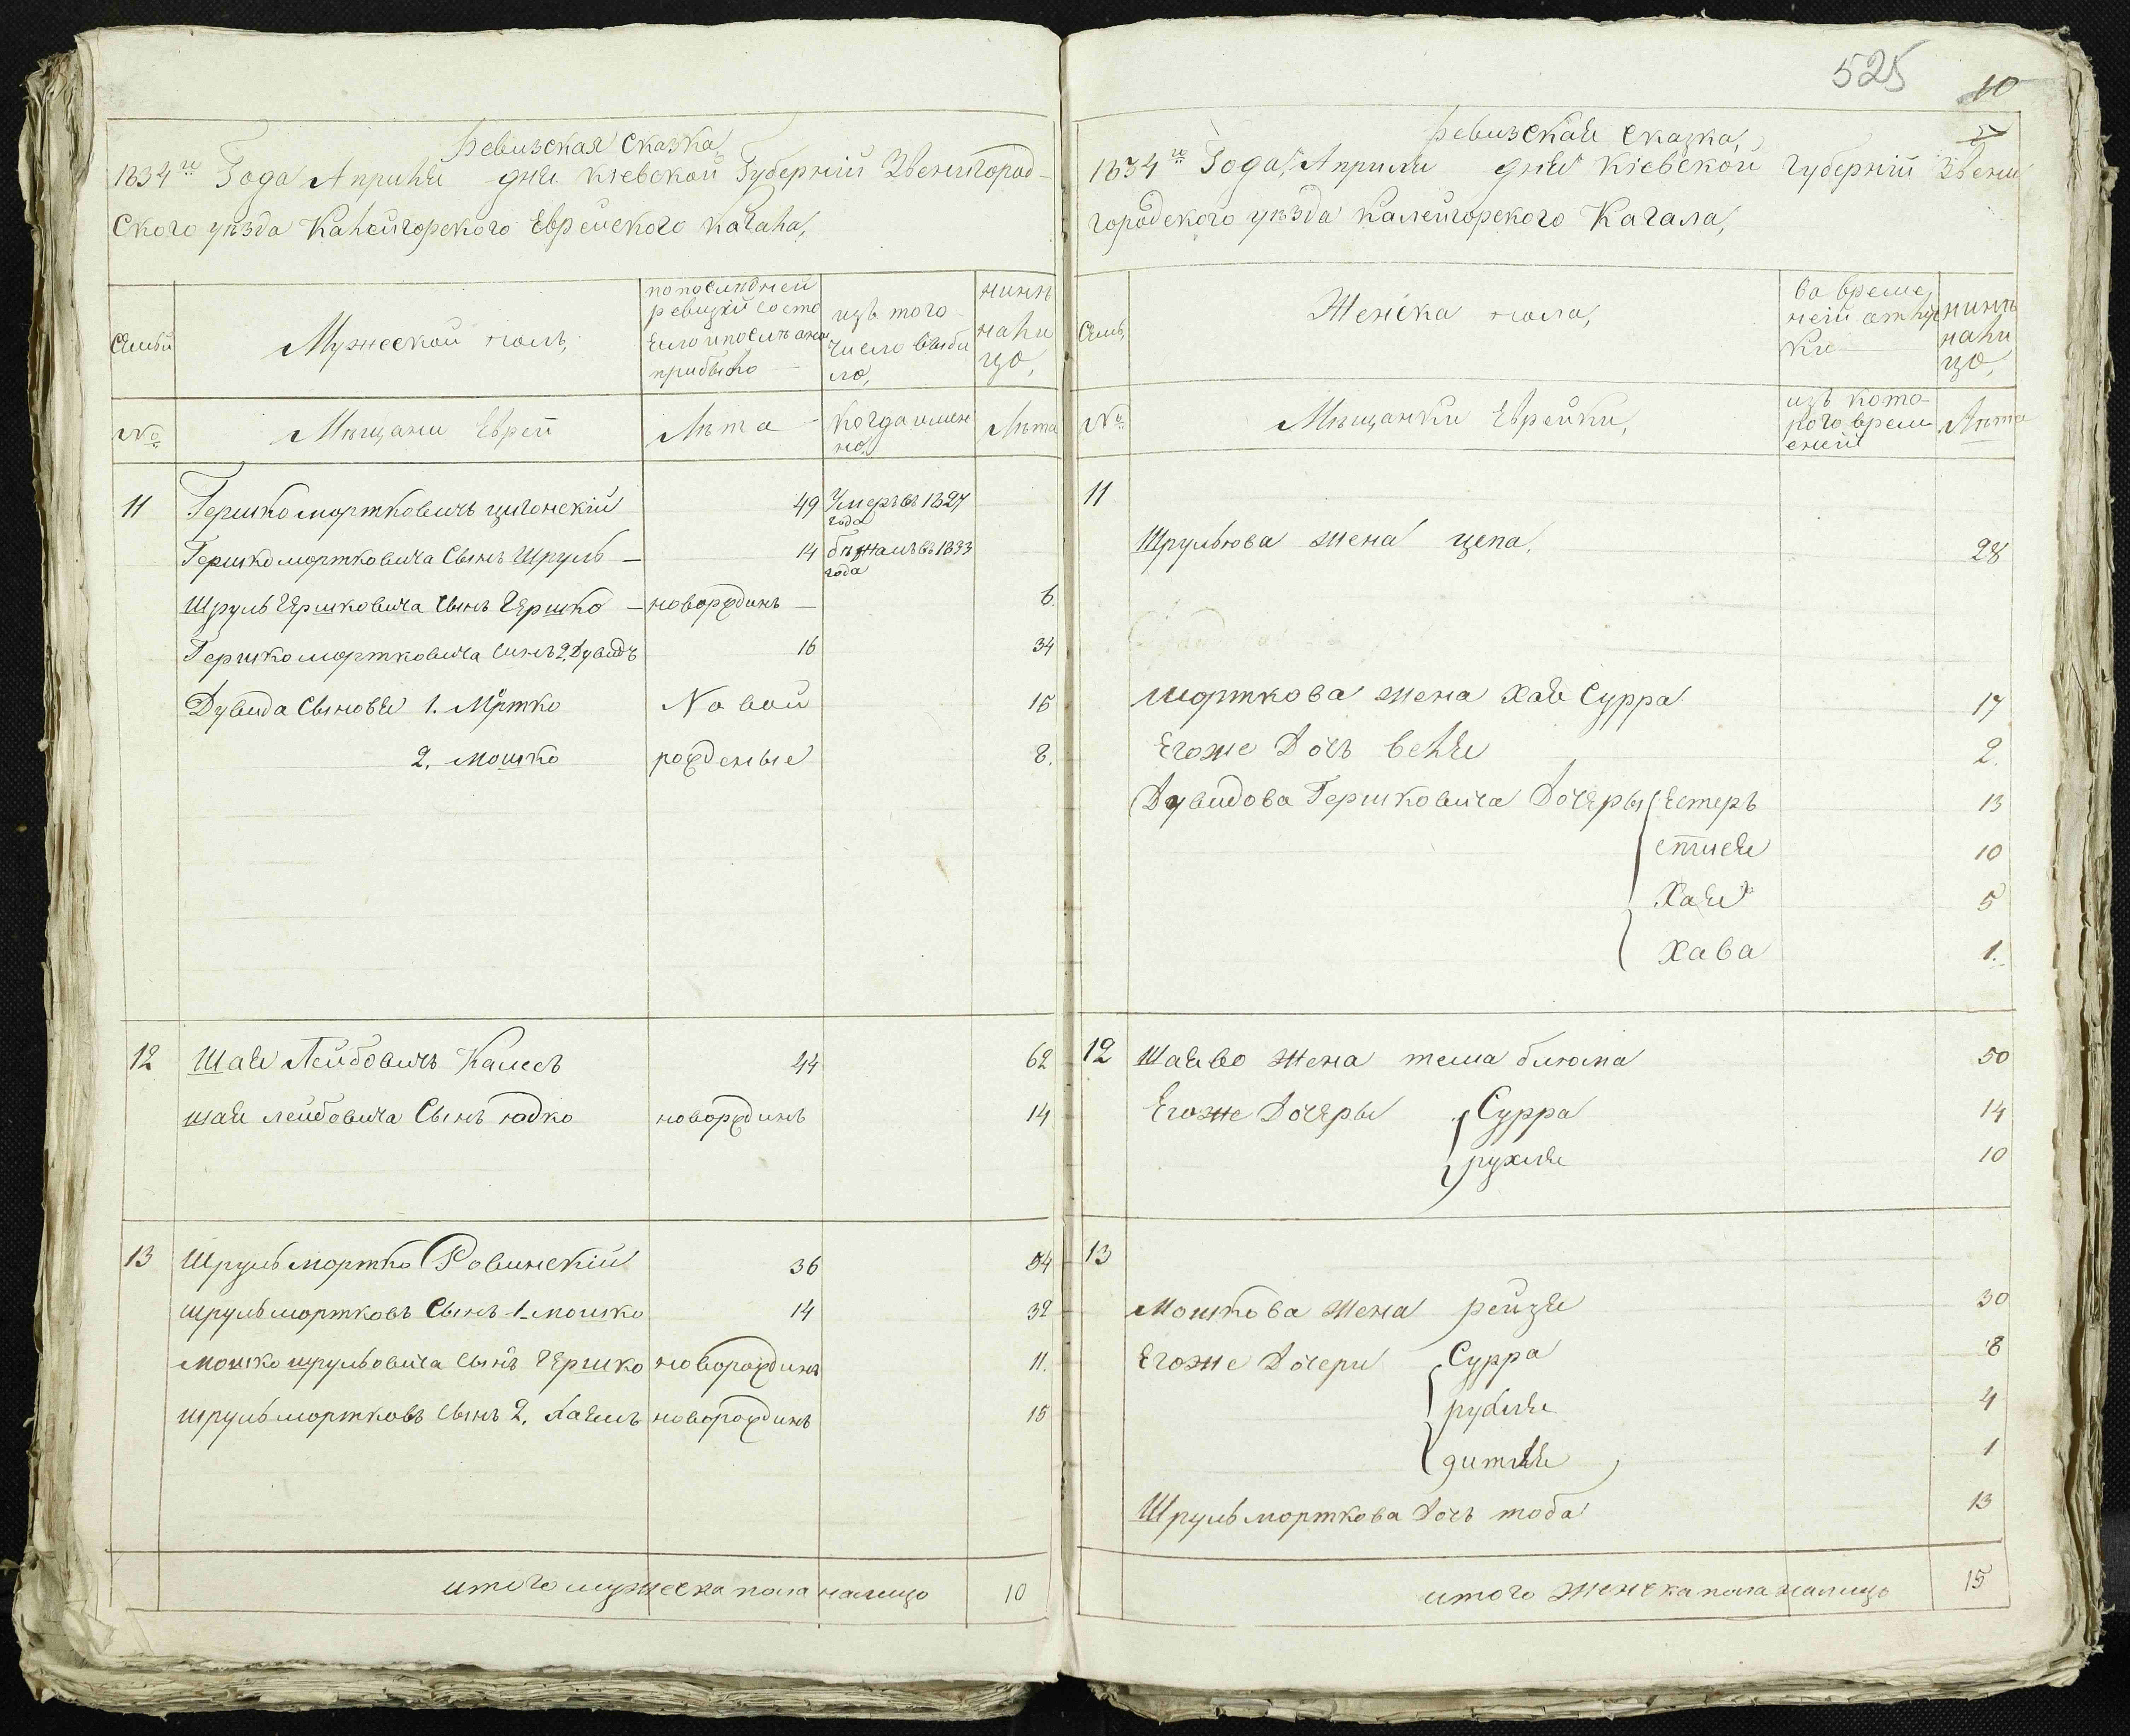 Ревизская Сказка,
1834го Года Априля дня Кіевской Губерніи Звенигород-
ского уѣзда Калейгорского Еврейского Кагала,
Семьи
Мужеской полъ,
попослѣдней
ревизіи состо
яло и послѣ оной
прибыло
изъ того
число выбы
ло,
нинѣ
нали
цо,
№
Мѣщани Евреи
Лѣта
когда имен
но,
Лѣта
11 Гершко мортковичъ цигонскій 49 Умеръ въ 1827
года
Гершко мортковича Сынъ Шруль — 14 бѣжалъ въ 1833
года
Шруль Гершковича Сынъ Гершко — новорждинъ — 6.
Гершко мортковича Синъ 2. Дувидъ 16 34
Дувида Сыновья 1. Мортко Новой 15
2. мошко рожденые 8.
12 Шая Лейбовичъ Камесъ 44 62
шая лейбовича Сынъ юдко новорждинъ 14
13 Шруль мортко Ровинскій 36 54
шруль мортковъ Сынъ 1. мошко 14 32
мошко шрульовича Сынъ Гершко новорождинъ 11.
шруль мортковъ Сынъ 2. Хаемъ новорождинъ 15
итого мужеска пола налицо 10
525
10
5
Ревизская Сказка,
1834го Года, Априля дня Кіевской Губерніи Звени
городского уѣзда Калейгорского Кагала,
Семьи,
Женска пола,
во време,
ней отлуч
ки
нинѣ
нали
цо,
№
Мѣщанки Еврейки,
изъ кото-
рого врем
ений
Лѣта
11
Шрульова жена ципа. 28
морткова жена хая Сурра 17
Егоже Дочь беля 2.
Дувидова Гершковича Дочеры Естеръ 13
10
Хая 5
Хава 1.
12 Шаево жена тема блюма 50
Егоже Дочеры Сурра 14
рухля 10
13
Мошкова жена рейзя 30
Егоже Дочери Сурра 8
рухля 4
дитля 1
Шруль морткова Дочь тоба 13
итого женска пола налицо 15